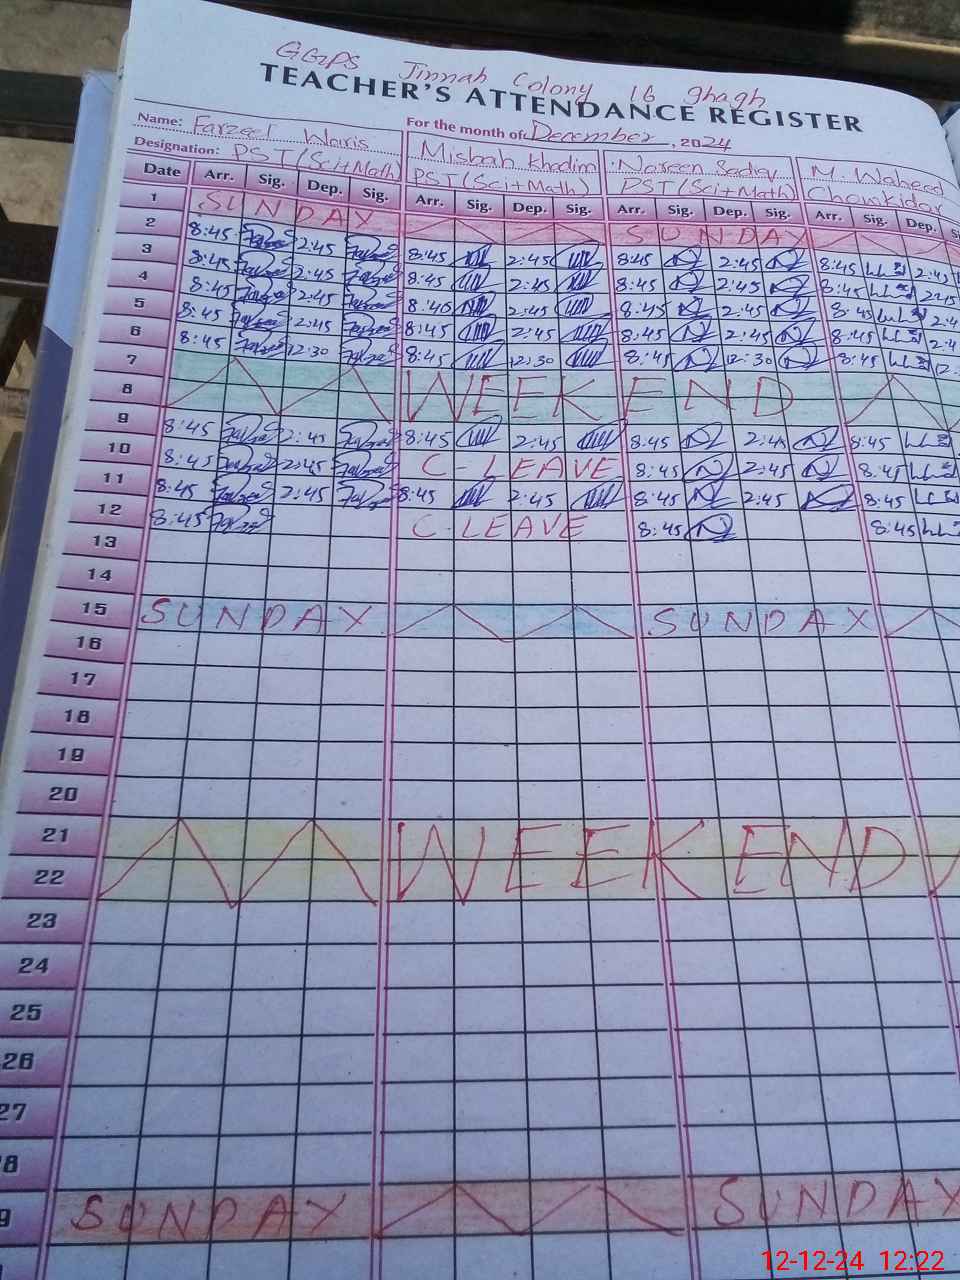 GGPS Jinnah Colony 16 ghagh
TEACHER'S ATTENDANCE REGISTER
For the month of December, 2024
Name: Farzeel Waris Misbah Khadim Noreen M. Waheed
Designation: PST(Sci+Math) PST(Sci+Math) PST(Sci+Math) Chowkidar
Date Arr. Sig. Dep. Sig. Arr. Sig. Dep. Sig. Arr. Sig. Dep. Sig. Arr. Sig. Dep.
1 SUNDAY SUNDAY
2 8:45 2:45 8:45 2:45 8:45 2:45 8:45 2:45
3 8:45 2:45 8:45 2:45 8:45 2:45 8:45 2:45
4 8:45 2:45 8:45 2:45 8:45 2:45 8:45 2:4
5 8:45 2:45 8:45 2:45 8:45 2:45 8:45 2:4
6 8:45 12:30 8:45 12:30 8:45 12:30 8:45 12:
7
WEEK END
8
9 8:45 2:45 8:45 2:45 8:45 2:45 8:45
10 8:45 2:45 C-LEAVE 8:45 2:45 8:45
11 8:45 2:45 8:45 2:45 8:45 2:45 8:45
12 8:45 C-LEAVE 8:45 8:45
13
14
15 SUNDAY SUNDAY
16
17
18
19
20
21
WEEK END
22
23
24
25
26
27
8
9 SUNDAY SUNDAY
12-12-24 12:22